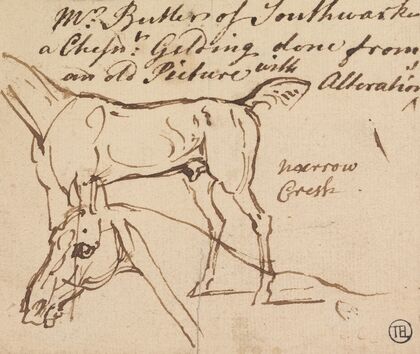 Mr. Butler of Southwark
a Chesnt. Gelding done from
an old Picture with Alteration
narrow
Crest
TEL